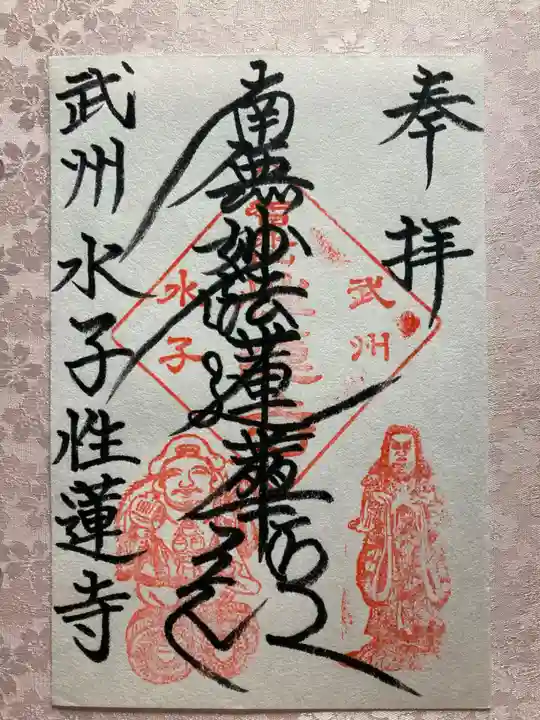 奉拝
南無妙法蓮華経
武州水子性蓮寺
武州
水子